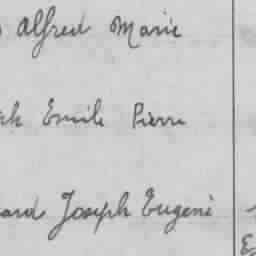 Alfred Marie
Emile Pierre
Joseph Eugene